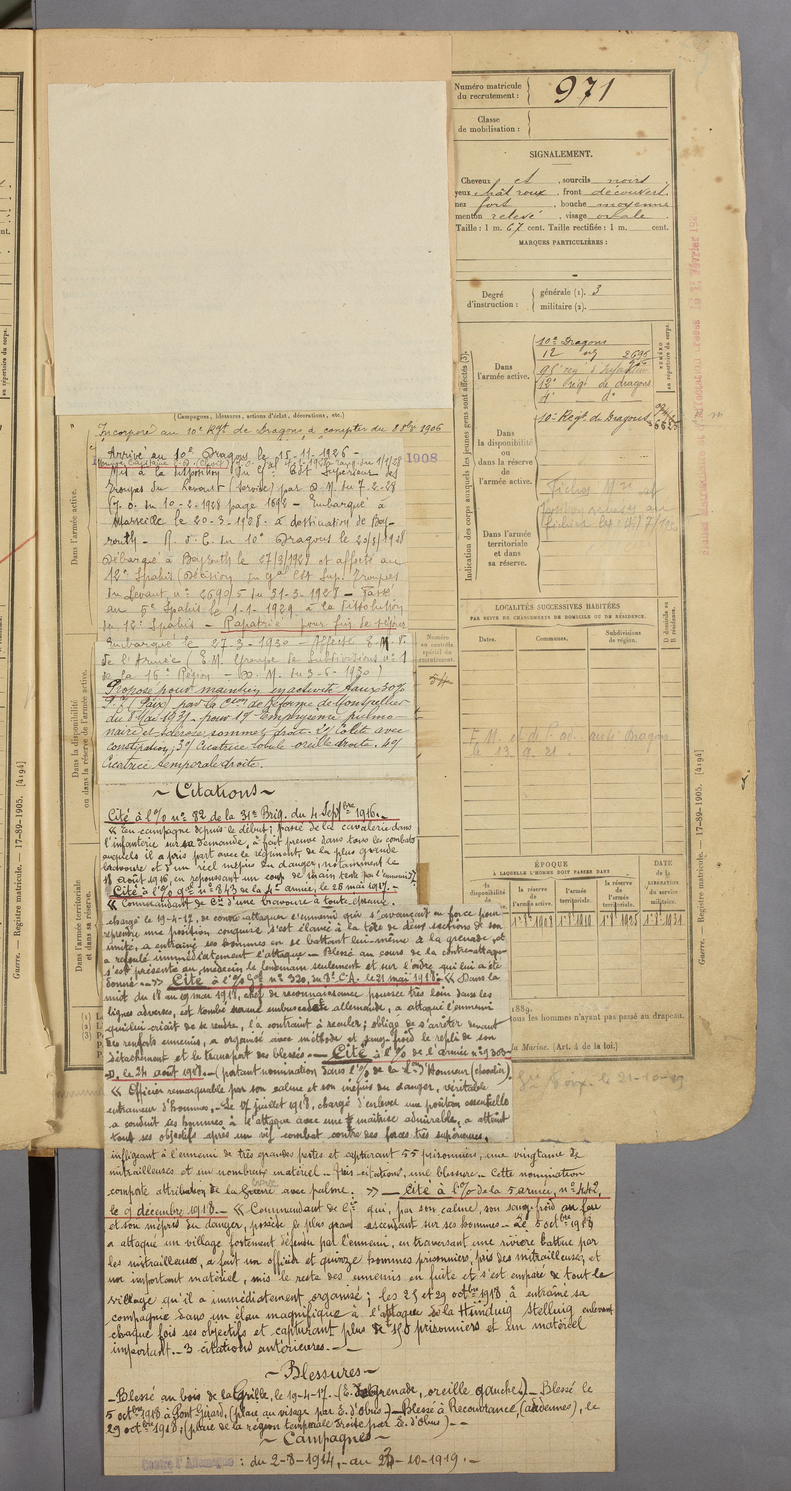 Numéro matricule
du recrutement :
971
Classe
de mobilisation :
SIGNALEMENT.
Cheveux et , sourcils noirs
yeux chât roux , front découvert
nez fort , bouche moyenne
menton relevé , visage ovale
Taille : 1 m. 67 cent. Taille rectifiée : 1 m. cent.
MARQUES PARTICULIÈRES :
Degré
d'instruction :
générale (1). 3
militaire (2).
Indication des corps auxquels les jeunes gens sont affectés (3).
Dans
l'armée active.
10e Dragons
12
95e
12e de dragons
NUMÉRO
au répertoire du corps.
Dans
la disponibilité
ou
dans la réserve
de
l'armée active.
10e Régt de Dragons
Dans l'armée
territoriale
et dans
sa réserve.
LOCALITÉS SUCCESSIVES HABITÉES
PAR SUITE DE CHANGEMENTS DE DOMICILE OU DE RÉSIDENCE.
Dates.
Communes.
Subdivisions
de région.
D domicile ou
R résidence.
le 13 9. 21.
ÉPOQUE
À LAQUELLE L'HOMME DOIT PASSER DANS
DATE
de la
LIBÉRATION
du service
militaire.
la
disponibilité
de
la réserve
de
l'armée active.
l'armée
territoriale.
la réserve
de l'armée
territoriale.
1889.
tous les hommes n'ayant pas passé au drapeau.
la Marine. (Art. 4 de la loi.)
Guerre. — Registre matricule. — 17-89-1905. [4194]
Guerre. — Registre matricule. — 17-89-1905. [4194]
(Campagnes, blessures, actions d'éclat, décorations, etc.)
Dans l'armée active.
Dans la disponibilité
ou dans la réserve de l'armée active.
Dans l'armée territoriale
et dans sa réserve.
Numéro
au contrôle
spécial du
recrutement.
Incorporé au 10e Rgt de Dragons à compter du 8 8bre 1906
1908
Arrivé au 10e Dragons le 15-11-1926 -
Mis à la disposition du Gl Cdt Supérieur des
Troupes du Levant (service) par D. M. du 7-2-28
(J. O. du 10-2-1928 page 1692 - Embarqué à
Marseille le 20-3-1928 à destination de Bey-
routh - R. d. C. du 10e Dragons le 20/3/1928
Débarqué à Beyrouth le 27/3/1928 et affecté au
12e Spahis (Décision du Gal Cdt Sup. Troupes
du Levant, no 2690/5 du 31-3-1928 - Passé
au 5e Spahis le 1-1-1929 à la dissolution
du 12e Spahis - Rapatrié pour fin de séjour
Embarqué le 27-3-1930 - Affecté E. M. P.
de l'Armée (E. M. Groupe de Subdivisions no 1
de la 16e Région - D. M. du 3-6-1930)
Proposé pour maintien en activité taux 30%
par la Con de Réforme de Montpellier
du 8 Mai 1931 - pour 1° Emphysème pulmo-
naire et sclérose sommet droit. 2° Colite avec
constipation, 3° Cicatrice lobule oreille droite. 4°
Cicatrice temporale droite.
~ Citations ~
Cité à l'% no 82 de la 31e Brig. du 4 Septbre 1916. -
« En campagne depuis le début ; passé de la cavalerie dans
l'infanterie sur sa demande, a fait preuve dans tous les combats
auxquels il a pris part avec le régiment, de la plus grande
bravoure et d'un réel mépris du danger, notamment le
18 août 1916, en repoussant un coup de main tenté par l'ennemi ».
Cité à l'% gal no 843 de la 4e armée, le 26 mai 1917. -
« Commandant de Cie d'une bravoure à toute épreuve.
chargé le 19-4-17, de contre-attaquer l'ennemi qui s'avançait en force pour
reprendre une position conquise s'est élancé à la tête de deux sections de son
unité, a entraîné ses hommes en se battant lui-même à la grenade, et
a refoulé immédiatement l'attaque - Blessé au cours de la contre-attaque
s'est présenté au médecin le lendemain seulement et sur l'ordre qui lui a été
donné - » Cité à l'% Gal no 320, du 8e C.A. le 21 mai 1918. « Dans la
nuit du 18 au 19 mai 1918, chef de reconnaissance poussée très loin dans les
lignes adverses, est tombé dans une embuscade allemande, a attaqué l'ennemi
qui lui criait de se rendre, l'a contraint à reculer ; obligé de s'arrêter devant
des renforts ennemis, a organisé avec méthode et sang-froid le repli de son
détachement et le transport des blessés. - Cité à l'% de l'armée no
D, le 24 août 1918. - (portant nomination dans l'% de la L. d'Honneur (chevalier).
« Officier remarquable par son calme et son mépris du danger, véritable
entraîneur d'hommes, - Le 17 juillet 1918, chargé d'enlever une position essentielle
a conduit ses hommes à l'attaque avec une maîtrise admirable, a atteint
tous ses objectifs après un vif combat contre des forces très supérieures,
infligeant à l'ennemi de très grandes pertes et capturant 55 prisonniers, une vingtaine de
mitrailleuses et un nombreux matériel - Trois citations, une blessure - Cette nomination
comporte attribution de la Croix de Guerre avec palme. » - Cité à l'% de la 5 armée, no 442,
le 9 décembre 1918 - « Commandant de Cie qui, par son calme, son sang-froid au feu
et son mépris du danger, possède le plus grand ascendant sur ses hommes - Le 5 octbre 1918
a attaqué un village fortement défendu par l'ennemi, en traversant une rivière battue par
les mitrailleuses, a fait un officier et quinze hommes prisonniers, pris des mitrailleuses, et
un important matériel, mis le reste des ennemis en fuite et s'est emparé de tout le
village qu'il a immédiatement organisé ; les 25 et 29 octbre 1918 a entraîné sa
compagnie dans un élan magnifique à l'attaque de la Hünding Stellung enlevant
chaque fois ses objectifs et capturant plus de 150 prisonniers et un matériel
important. - 3 citations antérieures. -
~ Blessures ~
- Blessé au bois de la Grille, le 19-4-17. - (E. de Grenade, oreille gauche). - Blessé le
5 octbre 1918 à Pont Girard, (plaie au visage par E. d'Obus) - Blessé à Recouvrance, (Ardennes), le
29 octbre 1918, (plaie de la région temporale droite par E. d'Obus) - -
~ Campagnes ~
Contre l'Allemagne : du 2-8-1914, - au 23-10-1919. -